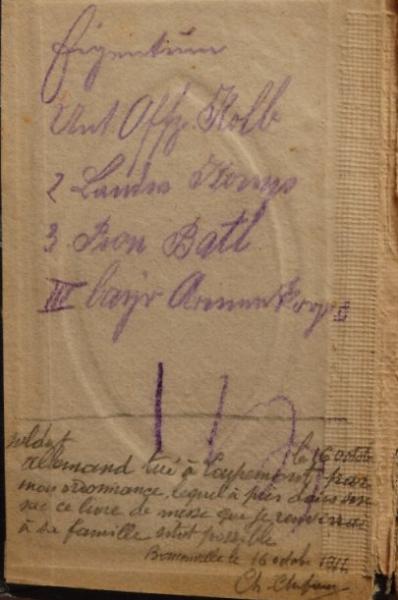 Eigentum
Unt Offz. Kolb
2 Landw Komp
3 Pion Batl.
III bayr Armee Korps
soldat le 16 octobre
allemand tué à par
mon ordonnance, lequel a pris dans son
sac ce livre de messe que je renverrai
à sa famille si est possible
le 16 octobre 191
Ch.